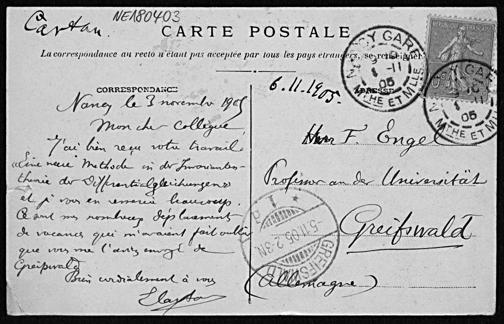 Cartan
NE180403
CARTE POSTALE
La correspondance au recto n'étant pas acceptée par tous les pays étrangers, se
NANCY GARE
11
05
MTHE ET MLLE
NANCY GARE
11
05
MTHE ET MLLE
6.11.1905.
CORRESPONDANCE
Nancy le 3 novembre 1905
Mon cher Collègue,
J'ai bien reçu votre travail
« Eine neue Methode in der Invarianten-
theorie der Differentialgleichungen »
et je vous en remercie beaucoup.
Ce sont nos nombreux déplacements
de vacances qui m'avaient fait oublier
que vous me l'aviez envoyé de
Greifswald
Bien cordialement à vous
E Cartan
Herrn F. Engel
Professor an der Universität
Greifswald
(Allemagne)
GREIFSWALD
5.11.05.2-3N